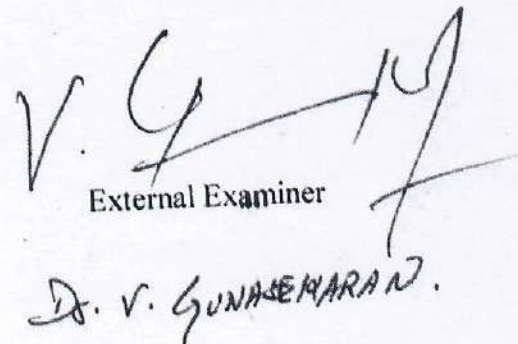 V. G
External Examiner
Dr. V. GUNASEKARAN.